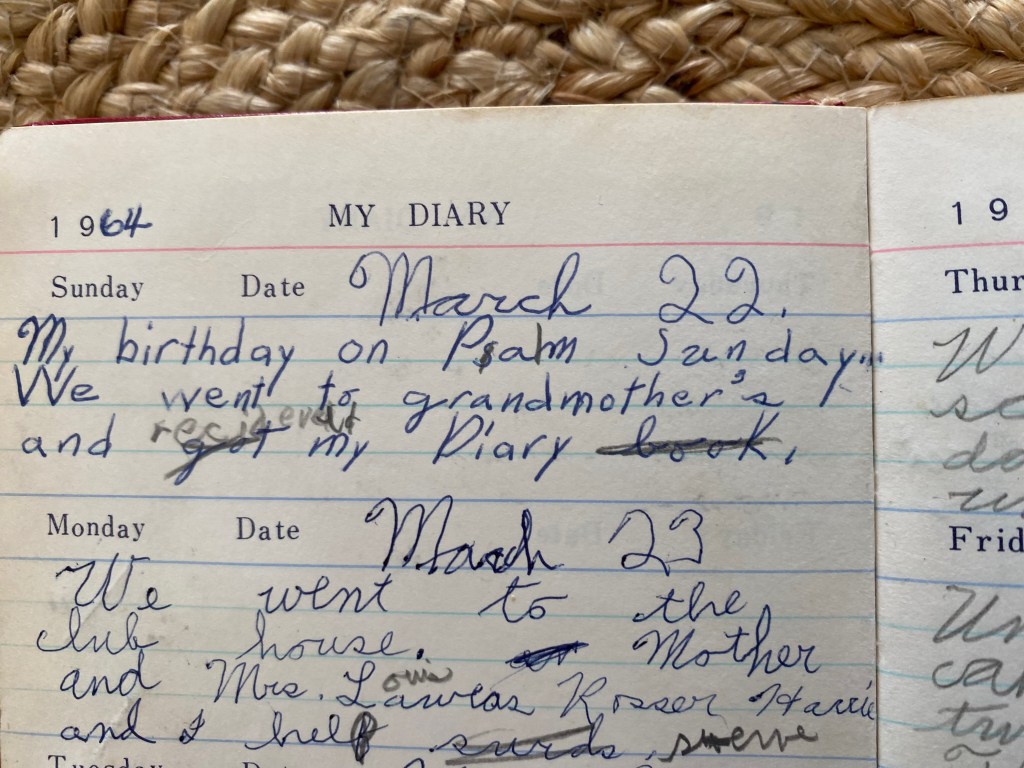 1964 MY DIARY
Sunday Date March 22.
My birthday on Psalm Sunday...
We went to grandmother's
and got my Diary book.
Monday Date March 23
We went to the
club house. Mother
and Mrs. Rosser Harrie
and I help
Tuesday Date
19
Thur
W
sc
da
Frid
Un
can